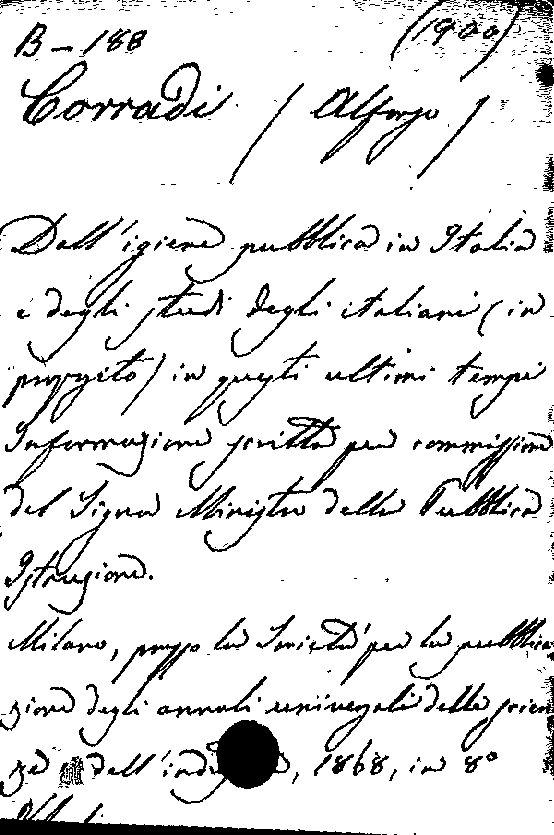 B - 188 (1900)
Corradi / Alfonso /
Dell'igiene pubblica in Italia
e degli studi degli italiani (in
proposito) in questi ultimi tempi
Informazione scritta per commissione
del Signor Ministro della Pubblica
Istruzione.
Milano, presso la Società per la pubblica-
zione degli annali universali delle scien
ze e dell'industria, 1868, in 8º